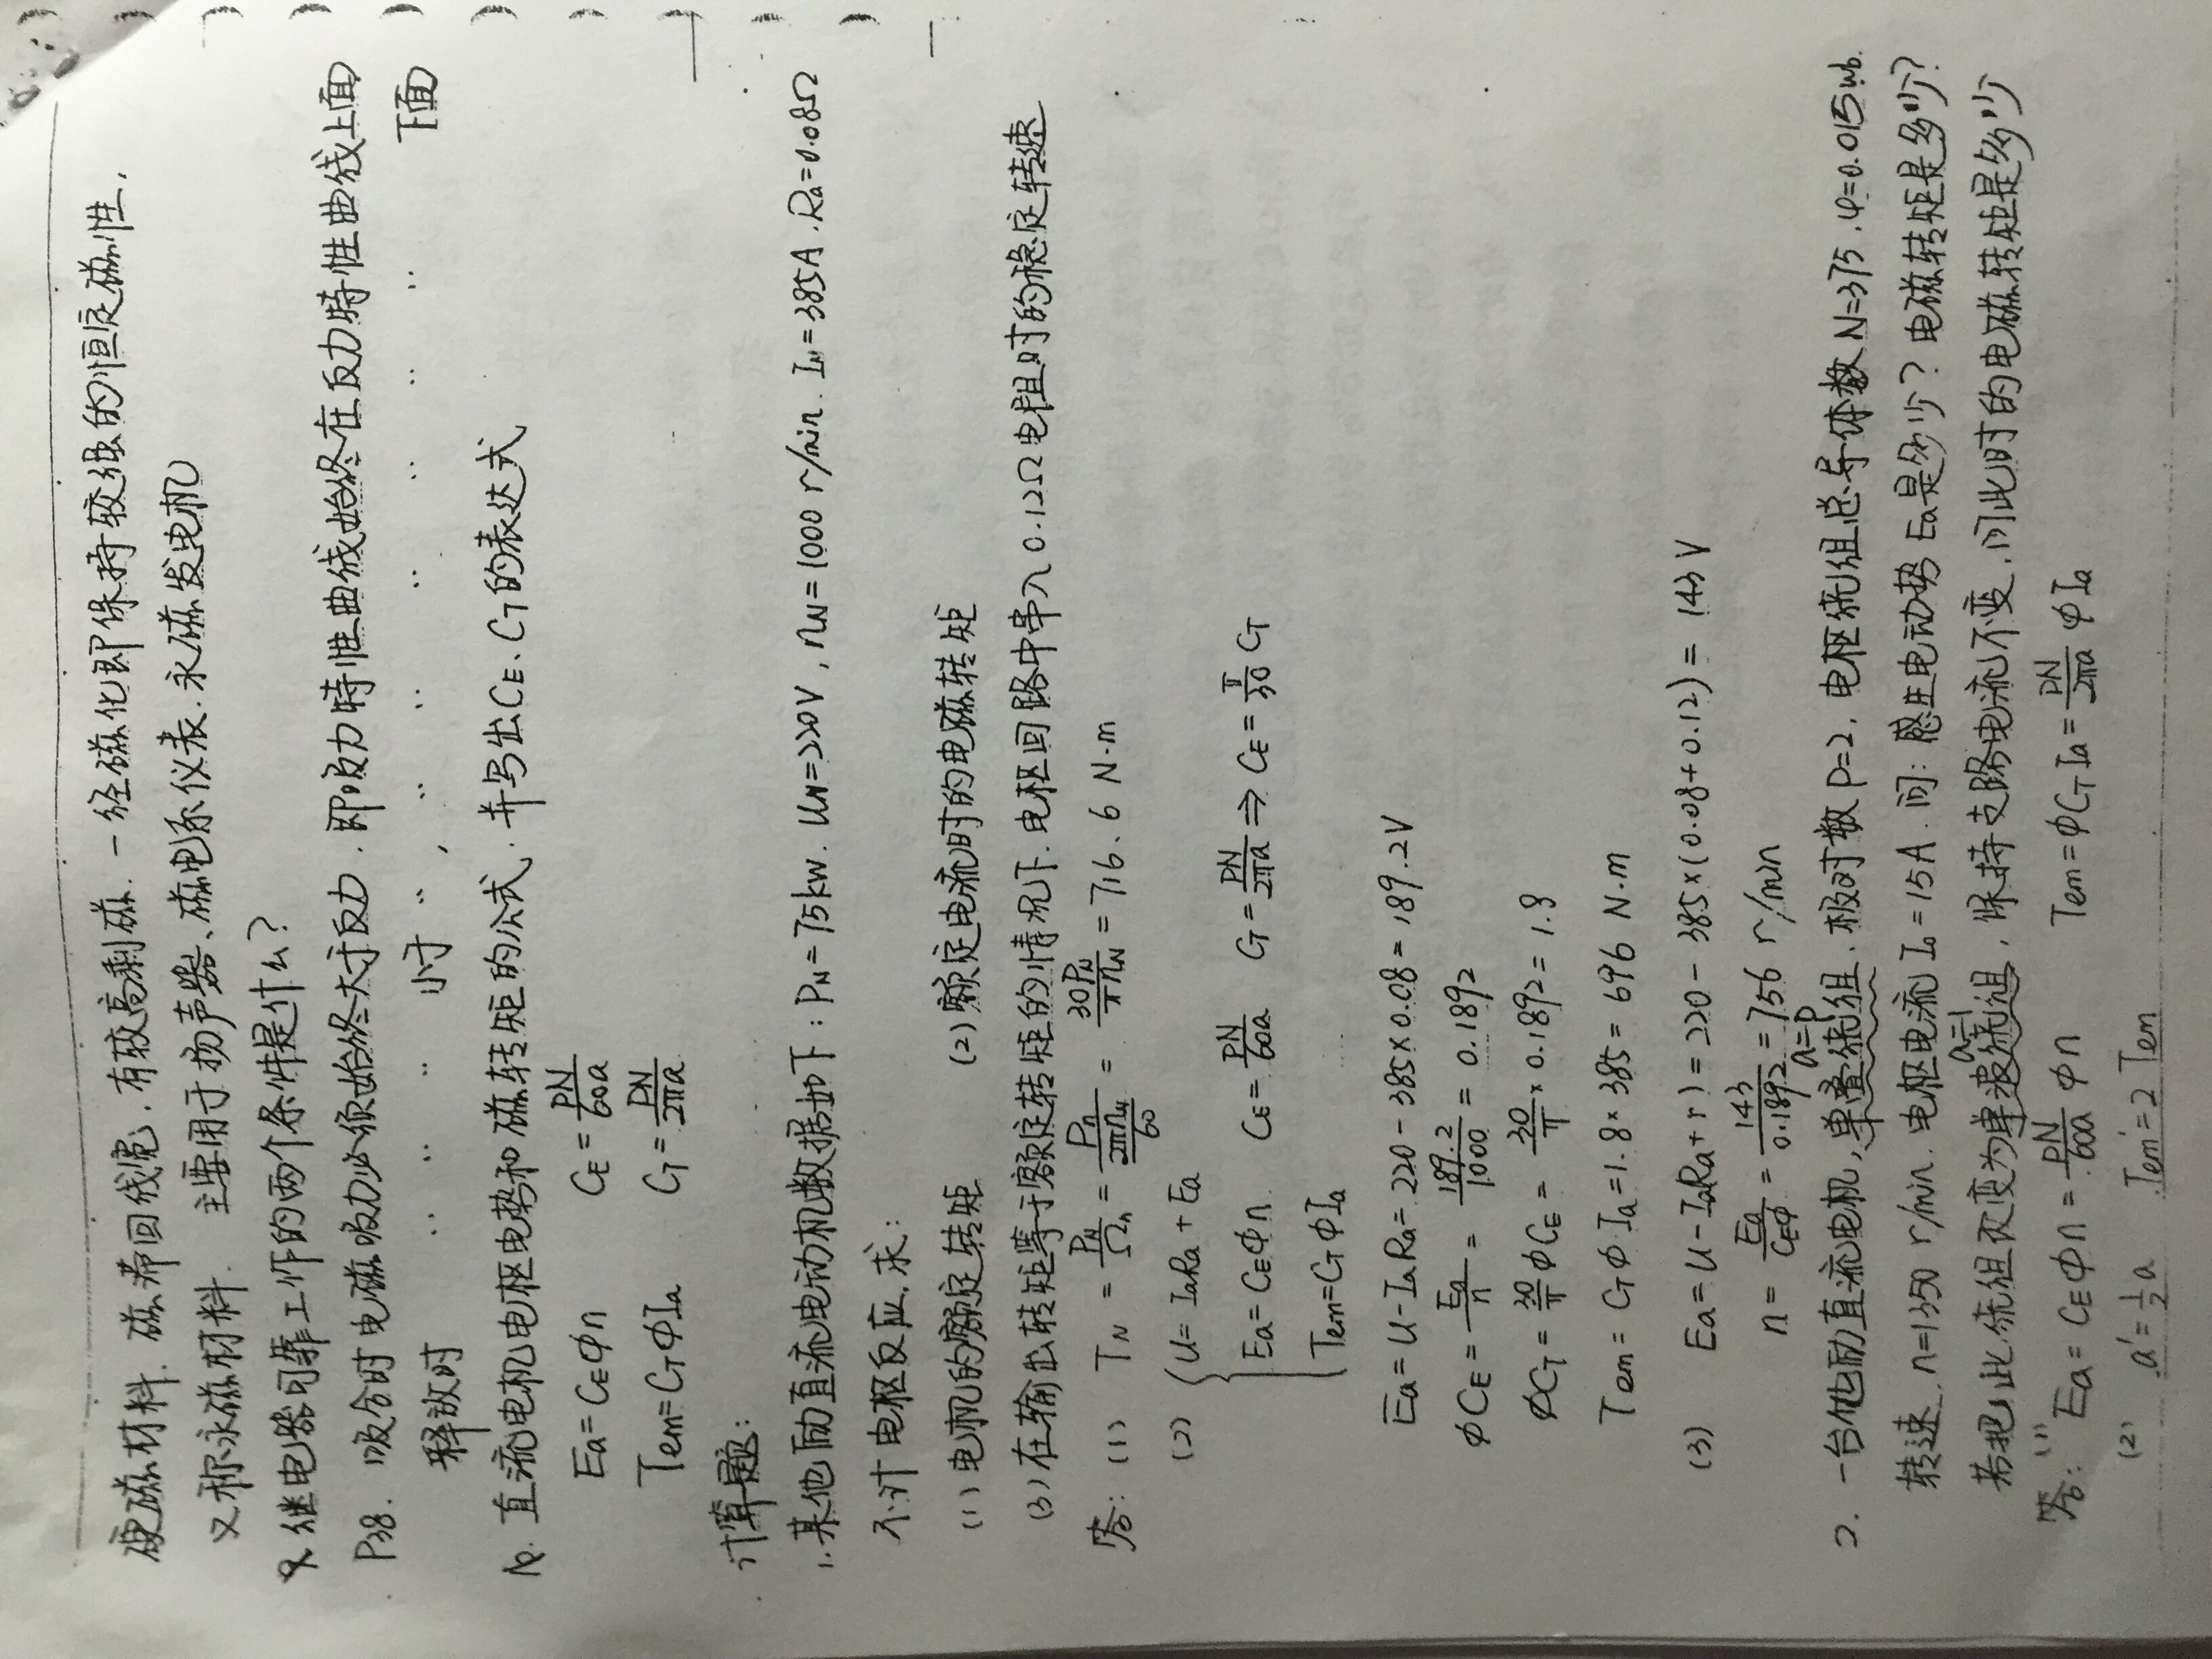 硬磁材料. 磁滞回线宽. 有较高剩磁. 一经磁化即保持较强的恒定磁性,
又称永磁材料. 主要用于扬声器、磁电系仪表. 永磁发电机
9. 继电器可靠工作的两个条件是什么?
P38. 吸合时电磁吸力必须始终大于反力. 即吸力特性曲线始终在反力特性曲线上面
释放时 〃 〃 〃 小于 〃 , 〃 〃 〃 〃 〃 〃 下面
10. 直流电机电枢电势和磁转矩的公式. 并写出CE、CT的表达式
Ea=CEφn CE=PN/60a
Tem=CTφIa CT=PN/2πa
计算题:
1. 某他励直流电动机数据如下: PN=75kw. UN=220V, nN=1000 r/min. IN=385A. Ra=0.08Ω
不计电枢反应. 求:
(1) 电机的额定转矩 (2) 额定电流时的电磁转矩
(3) 在输出转矩等于额定转矩的情况下. 电枢回路中串入0.12Ω电阻时的稳定转速
答: (1) TN = PN/Ωn = Pn/(2πnN/60) = 30PN/πnN = 716.6 N·m
(2) { U= IaRa + Ea
Ea= CEφn CE= PN/60a CT= PN/2πa ⇒ CE= π/30 CT
Tem=CTφIa
Ea= U-IaRa= 220-385×0.08= 189.2V
φCE= Ea/n = 189.2/1000 = 0.1892
φCT= 30/π φCE= 30/π × 0.1892= 1.8
Tem= CTφ·Ia=1.8×385= 696 N·m
(3) Ea= U-IaRa+r)= 220- 385×(0.08+0.12)= 143 V
n= Ea/CEφ = 143/0.1892 = 756 r/min
a=p
2. 一台他励直流电机, 单叠绕组. 极对数P=2. 电枢绕组总导体数N=375. φ=0.015wb.
转速 n=1350 r/min. 电枢电流Ia=15A. 问: 感生电动势Ea是多少? 电磁转矩是多少?
a=1
若把此绕组改变为单波绕组, 保持支路电流不变. 问此时的电磁转矩是多少
答: (1) Ea= CEφn= PN/60a φn Tem=φCTIa= PN/2πa φIa
(2) a'= 1/2 a Tem'=2 Tem